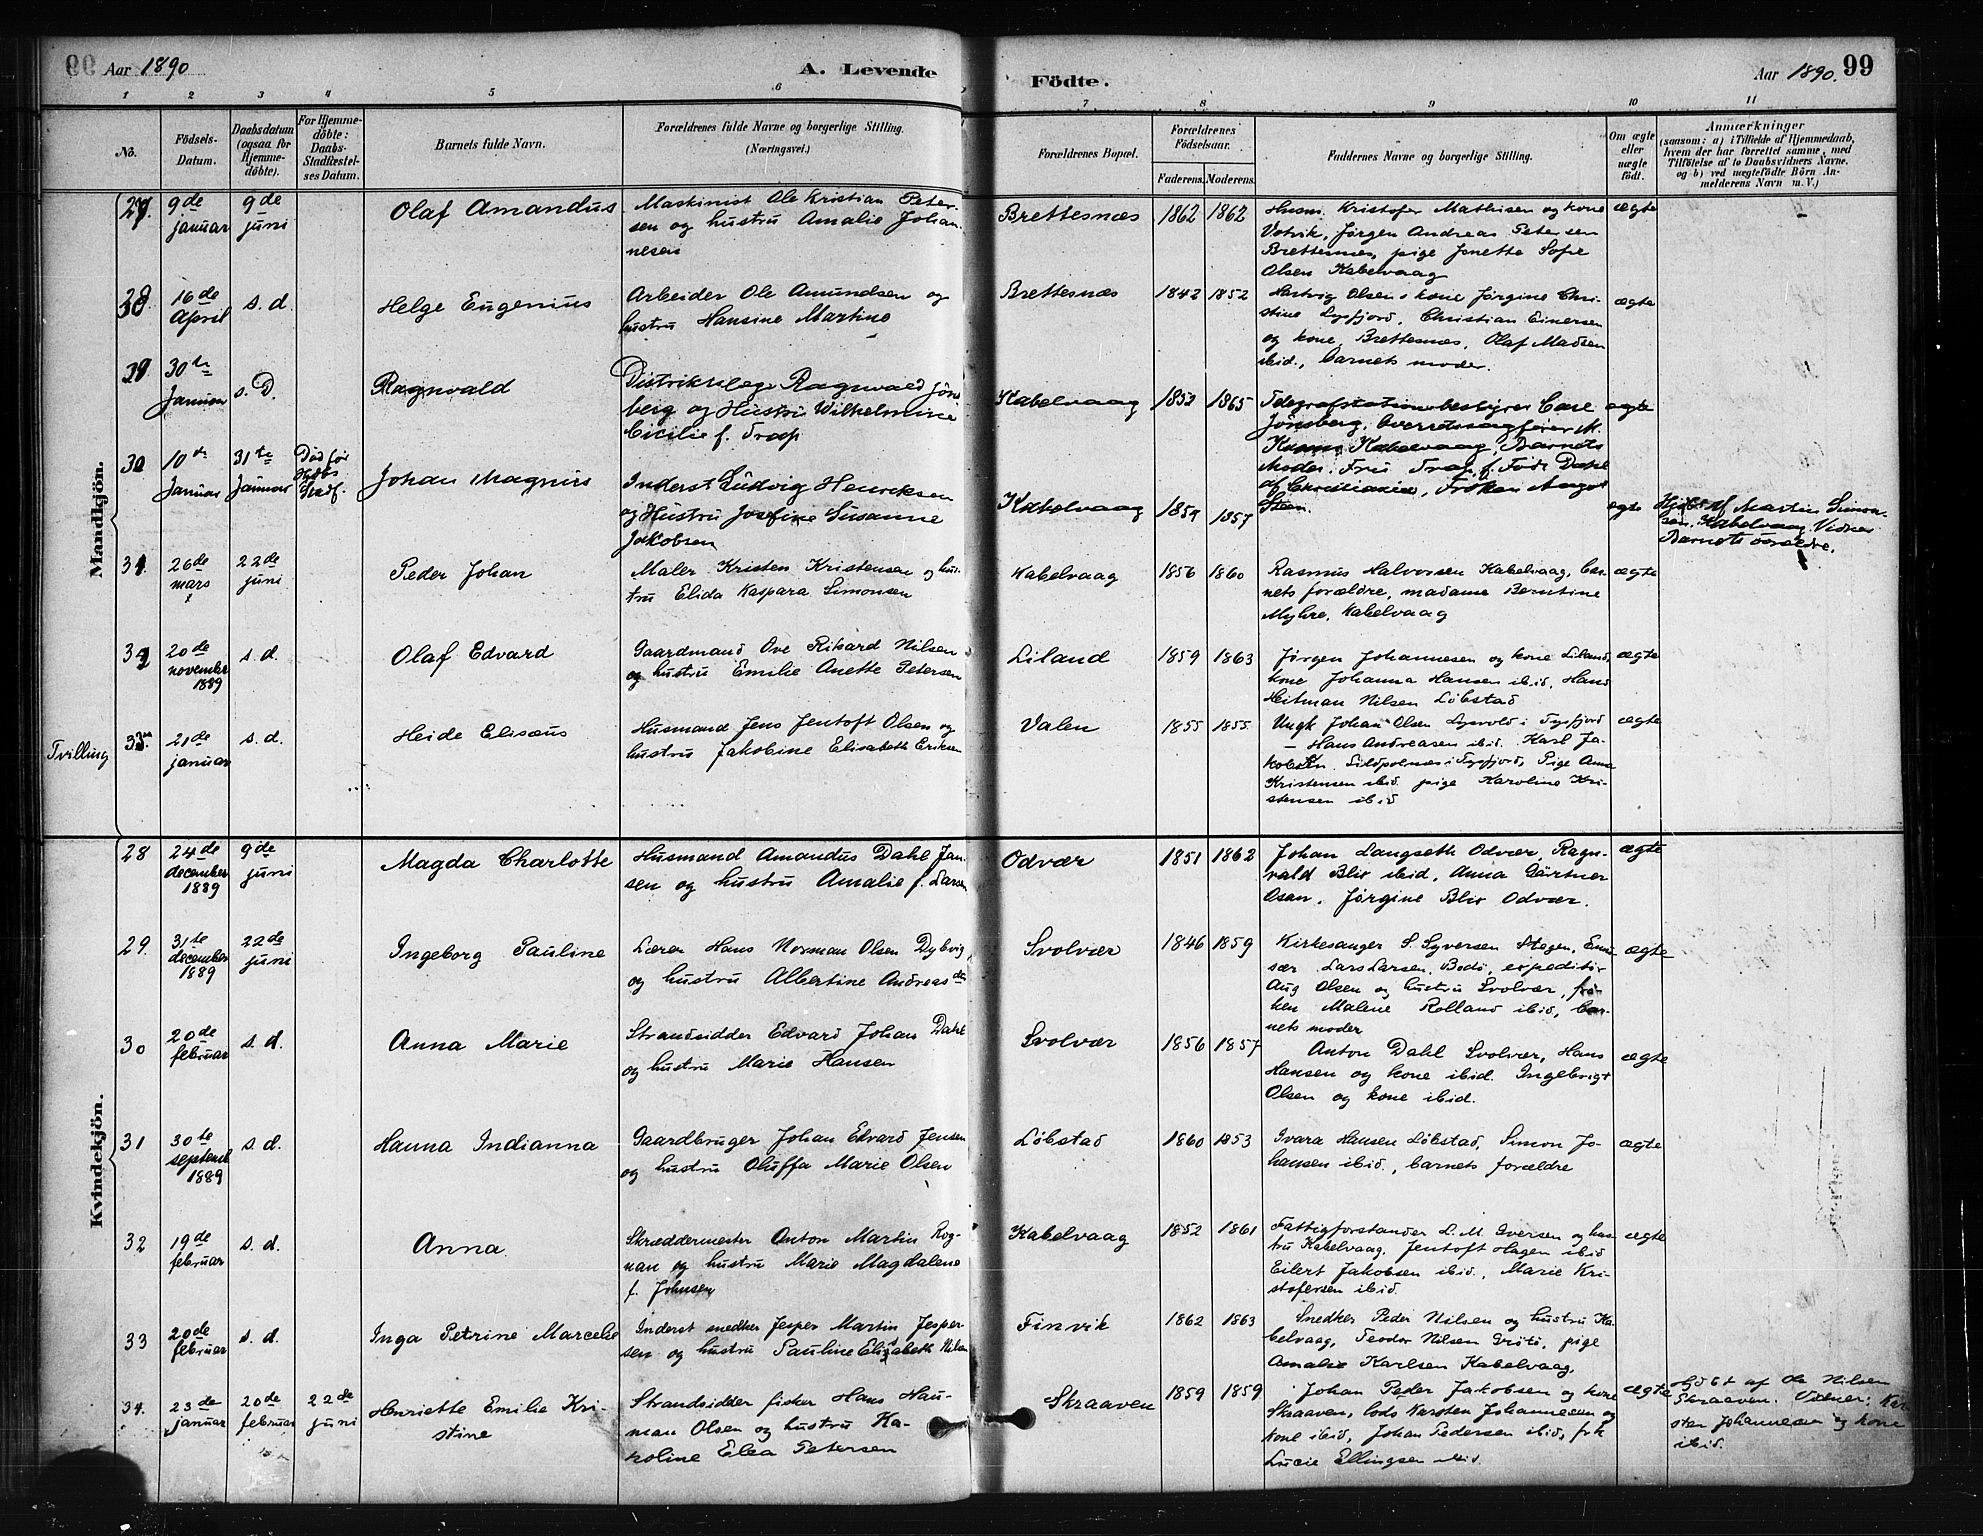 Aar 1890
A. Levende
Födte.
Aar 1890. 99
1 2 3 4 5 6 7 8 9 10 11
No.
Födsels-
Datum.
Daabsdatum
(ogsaa for
Hjemme-
döbte).
For Hjemme-
döbte:
Daabs-
Stadfæstel-
ses Datum.
Barnets fulde Navn.
Forældrenes fulde Navne og borgerlige Stilling.
(Næringsvei.)
Forældrenes Bopæl.
Forældrenes
Födselsaar.
Faderens. Moderens.
Faddernes Navne og borgerlige Stilling.
Om ægte
eller
uægte
födt.
Anmærkninger
(saasom: a) i Tilfælde af Hjemmedaab,
hvem der har forrettet samme, med
Tilföielse af to Daabsvidners Navne.
og b) ved uægtefödte Börn An-
melderens Navn m. V.)
Mandkjön.
27. 9de januar 9de juni Olaf Amandus
Maskinist Ole Kristian Peter-
sen og hustru Amalie Johan-
nesen
Brettesnæs 1862 1862
Husm. Kristofer Mathisen og kone
Votvik, Jørgen Andreas Petersen
Brettesnæs, pige Jonette Sofie
Olsen Kabelvaag
ægte
28 16de April s. d. Helge Eugenius
Arbeider Ole Amundsen og
hustru Hansine Martine
Brettesnæs 1842 1852
Hartvig Olsen o kone Jørgine Chri-
stine Lysfjord, Christian Einersen
og kone, Brettesnæs, Olaf Madsen
ibid., barnets moder.
ægte
29 30te Januar s. D. Ragnvald
Distriktslæge Ragnvald Jøns-
berg og Hustru Wilhelmine
Cicilie f. Trap
Kabelvaag 1853 1865
Telegrafstationsbestyrer Carl
Jönsberg, Overretssagfører M.
Kabelvaag, Barnets
Moder. Fru Trap, f. Födt Dahl
af Christiania, Frøken
Steen.
ægte
30 10de Januar 31te Januar Död før Stadf. Johan Magnus
Inderst Ludvig Henriksen
og Hustru Josefine Susanne
Jakobsen
Kabelvaag 1859 1857
ægte
Hjdbt Af Martin Simon-
sen, Kabelvaag Vidner
Barnets Forældre.
31. 26de mars 22de juni Peder Johan
Maler Kristen Kristensen og hus-
tru Elida Kaspara Simonsen
Kabelvaag 1856 1860
Rasmus Halvorsen Kabelvaag, bar-
nets forældre, madame Berntine
Myhre, Kabelvaag
ægte
32 20de november 1889 s. d. Olaf Edvard
Gaardmand Ove Rikard Nilsen
og hustru Emilie Anette Petersen
Liland 1859 1863
Jørgen Johannesen og kone Liland,
kone Johanna Hansen ibid, Hans
Hitman Nilsen Løbstad
ægte
Tvilling 33. 21de januar s. d. Heide Elisæus
Husmand Jens Jentoft Olsen og
hustru Jakobine Elisabeth Eriksen
Valen 1855 1855.
Ungk Johan Olsen i Tysfjord
– Hans Andreasen ibid. Karl Ja-
kobsen i Tysfjord, Pige Anna
Kristensen ibid. pige Karoline Kri-
stensen ibid
ægte
Kvindekjön.
28 24de december 1889 9de juni Magda Charlotte
Husmand Amandus Dahl Jan-
sen og hustru Amalie f. Larsen
Odvær 1851 1862
Johan Langseth Odvær, Ragn-
vald Blix ibid, Anna Gärtner
Osan, Jørgine Blix Odvær.
ægte
29. 31te december 1889 22de juni Ingeborg Pauline
Lærer Hans Norman Olsen Dybvig,
og hustru Albertine Andreasdr
Svolvær 1846 1859
Kirkesanger S. Syversen Stegen, Emis-
sær Lars Larsen, Bodö, expeditör
Aug Olsen og hustru Svolvær, frö-
ken Malene Rolland ibid, bar-
nets moder
ægte
30 20de februar s. d. Anna Marie
Strandsidder Edvard Johan Dahl
og hustru Marie Hansen
Svolvær 1856 1857
Anton Dahl Svolvær, Hans
Hansen og kone ibid. Ingebrigt
Olsen og kone ibid.
ægte
31 30te septemb 1889 s. d. Hanna Indianna
Gaardbruger Johan Edvard Jensen
og hustru Oluffa Marie Olsen
Løbstad 1860 1853
Ivara Hansen Løbstad, Simon Jo-
hansen ibid., barnets forældre
ægte
32 19de februar s. d. Anna
Skræddermester Anton Martin Rog-
nan og hustru Marie Magdalene
f. Johnsen
Kabelvaag 1852 1861
Fattigforstander L. M. Iversen og hus-
tru Kabelvaag, Jentoft Hagen ibid
Eilert Jakobsen ibid., Marie Kri-
stofersen ibid.
ægte
33 20de februar s. d. Inga Petrine Marcelie
Inderst snedker Jesper Martin Jesper-
sen og hustru Pauline Elisabeth Nilsen
Finvik 1862 1863
Snedker Peder Nilsen og hustru Ka-
belvaag, Teodor Nilsen Grötö, pige
Amalie Karlsen Kabelvaag,
34. 23de januar 20de februar 22de juni Henriette Emilie Kri-
stine
Strandsidder fisker Hans Hau-
man Olsen og hustru Ka-
roline Elea Petersen
Skraaven 1859 1859
Johan Peder Jakobsen og kone
Skraaven, Lods Karsten Johannesen og
kone ibid, Johan Pedersen ibid, frk
Lucie Ellingsen ibid
ægte
Hjdbt af Ole Nilsen
Skraaven. Vidner: Kar-
sten Johannesen og kone
ibid.